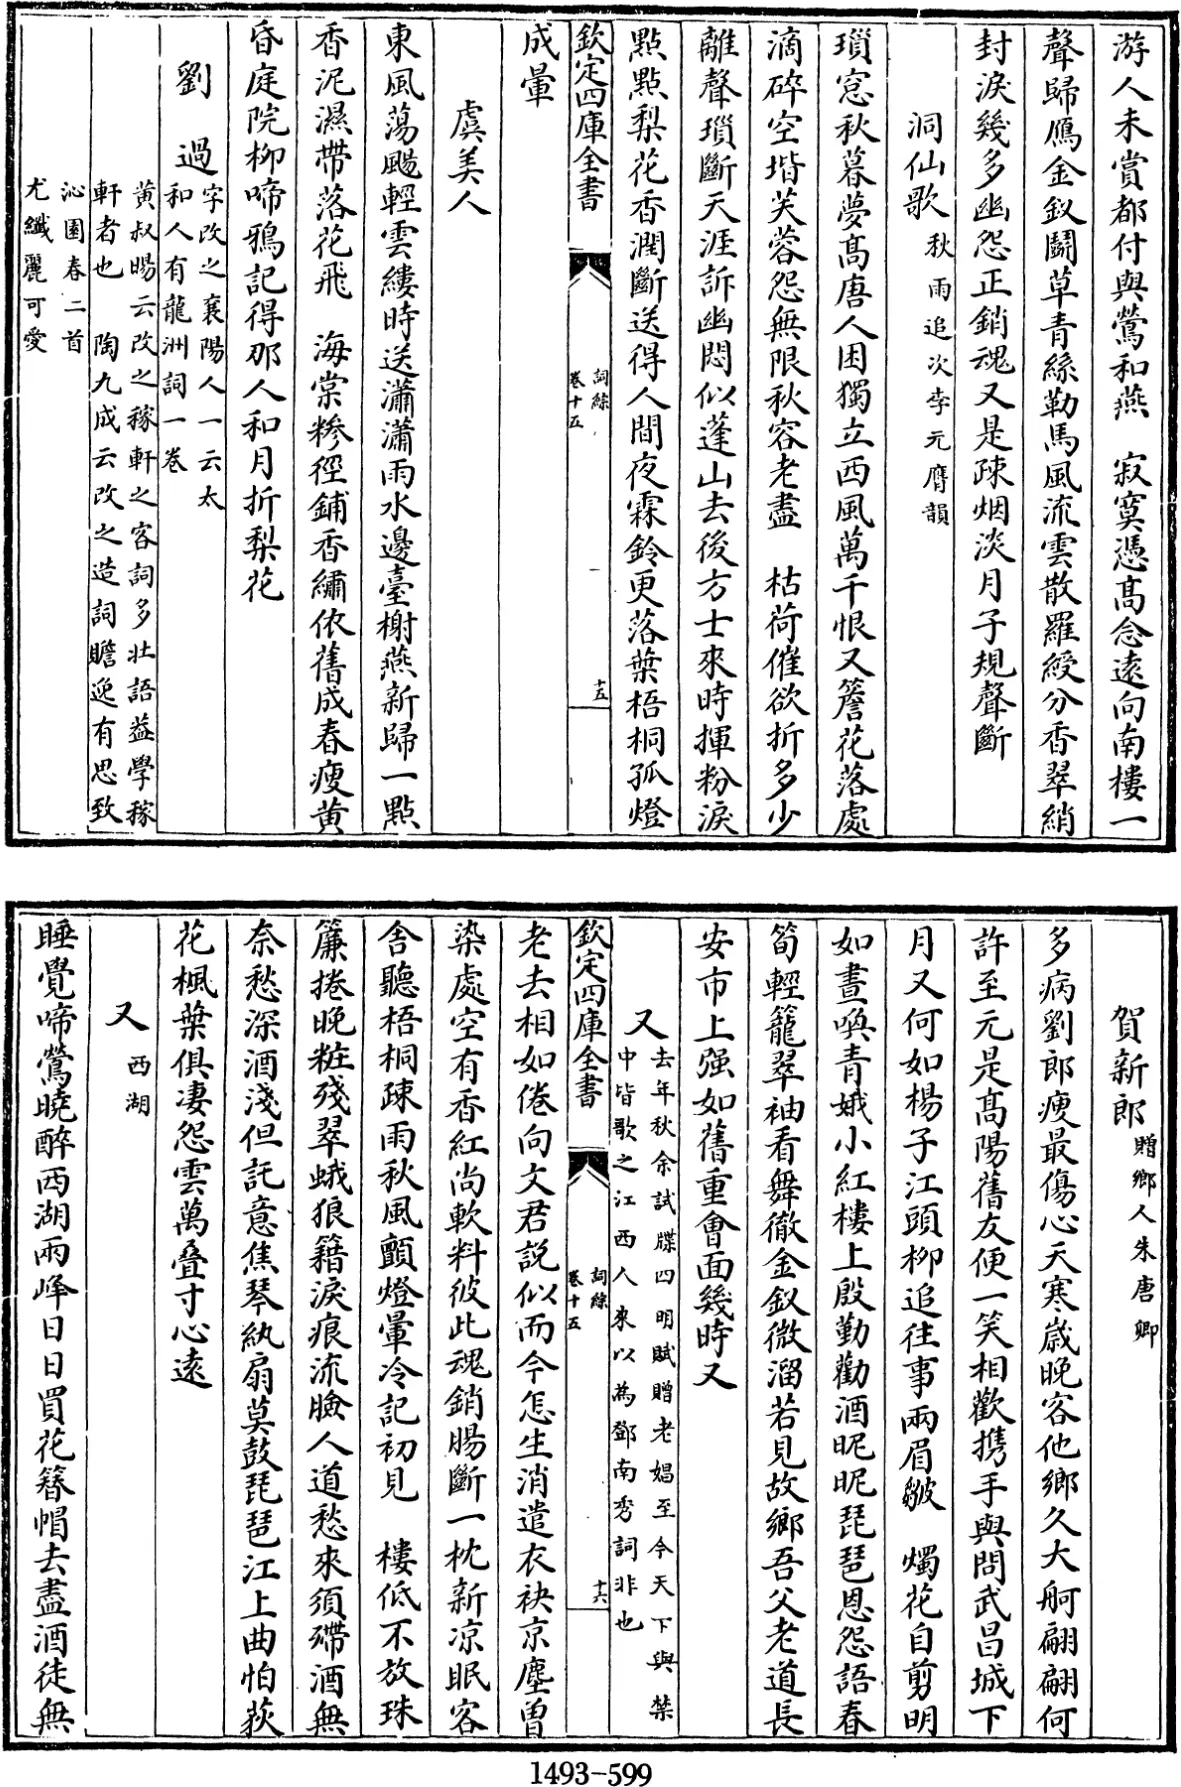 游人未賞都付與鶯和燕　寂寞憑髙念逺向南樓一
聲歸鴈金釵鬭草青絲勒馬風流雲散羅綬分香翠綃
封淚幾多幽怨正銷魂又是疎烟淡月子規聲斷
洞仙歌秋雨追次李元膺韻
瑣窓秋暮夢髙唐人困獨立西風萬千恨又簷花落處
滴碎空堦芙蓉怨無限秋容老盡　枯荷催欲折多少
離聲瑣斷天涯訴幽悶似蓬山去後方士來時揮粉淚
點點梨花香潤斷送得人間夜霖鈴更落葉梧桐孤燈
欽定四庫全書
詞綜
卷十五
十五
成暈
虞美人
東風蕩颺輕雲縷時送瀟瀟雨水邊臺榭燕新歸一點
香泥濕帶落花飛　海棠糝徑鋪香繡依舊成春瘦黄
昏庭院柳啼鴉記得那人和月折梨花
劉　過字改之襄陽人一云太
和人有龍洲詞一卷
黄叔暘云改之稼軒之客詞多壯語益學稼
軒者也　陶九成云改之造詞贍逸有思致
沁園春二首
尤纎麗可愛
賀新郎贈鄉人朱唐卿
多病劉郎瘦最傷心天寒嵗晩客他鄉久大舸翩翩何
許至元是髙陽舊友便一笑相歡攜手與問武昌城下
月又何如楊子江頭柳追往事兩眉皺　燭花自剪明
如晝喚青娥小紅樓上殷勤勸酒昵昵琵琶恩怨語春
筍輕籠翠袖看舞徹金釵微溜若見故鄉吾父老道長
安市上强如舊重會面幾時又
又去年秋余試牒四明賦贈老娼至今天下與禁
中皆歌之江西人來以為鄧南秀詞非也
欽定四庫全書
詞綜
卷十五
十六
老去相如倦向文君説似而今怎生消遣衣袂京塵曽
染處空有香紅尚軟料彼此魂銷腸斷一枕新凉眠客
舎聽梧桐疎雨秋風顫燈暈冷記初見　樓低不放珠
簾捲晩粧殘翠蛾狼籍淚痕流臉人道愁來須殢酒無
奈愁深酒淺但託意焦琴紈扇莫鼓琵琶江上曲怕荻
花楓葉俱淒怨雲萬疊寸心逺
又西湖
睡覺啼鶯曉醉西湖兩峰日日買花簪帽去盡酒徒無
1493-599